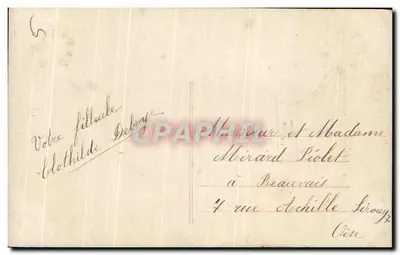 5
Votre filleule
Clothilde
CPARAMA
Monsieur et Madame
Mérard Piolet
à Beauvais
7 rue Achille Sirouy
Oise